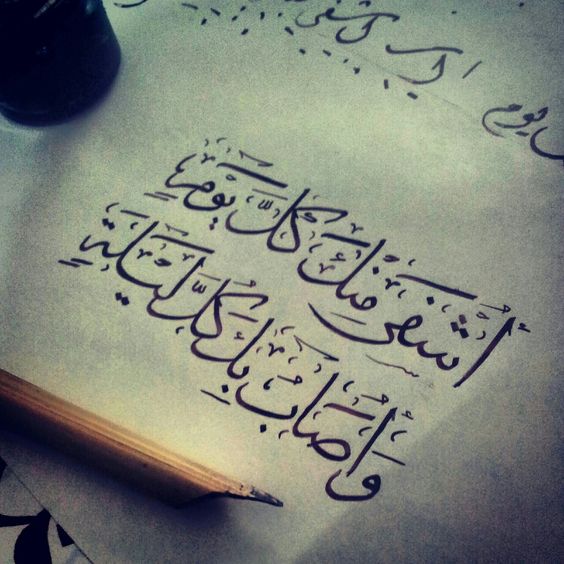 يوم
أُشْفَى مِنْكَ كُلَّ يَوْمٍ
وَأُصَابُ بِكَ كُلَّ لَيْلَةٍ